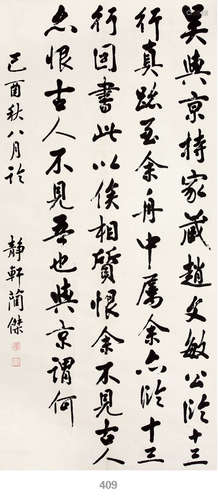 吳與京持家藏趙文敏公臨十三
行真跡至余舟中屬余亦臨十三
行因書此以俟相質恨余不見古人
亦恨古人不見吾也與京謂何
己酉秋八月臨
靜軒 傑
409